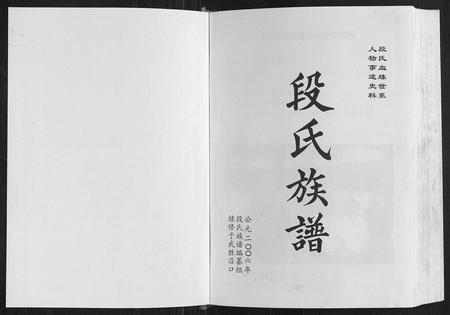 段氏血缘世系
人物事迹史料
段氏族譜
公元二〇〇六年
段氏族谱编纂组
续修于武胜沿口